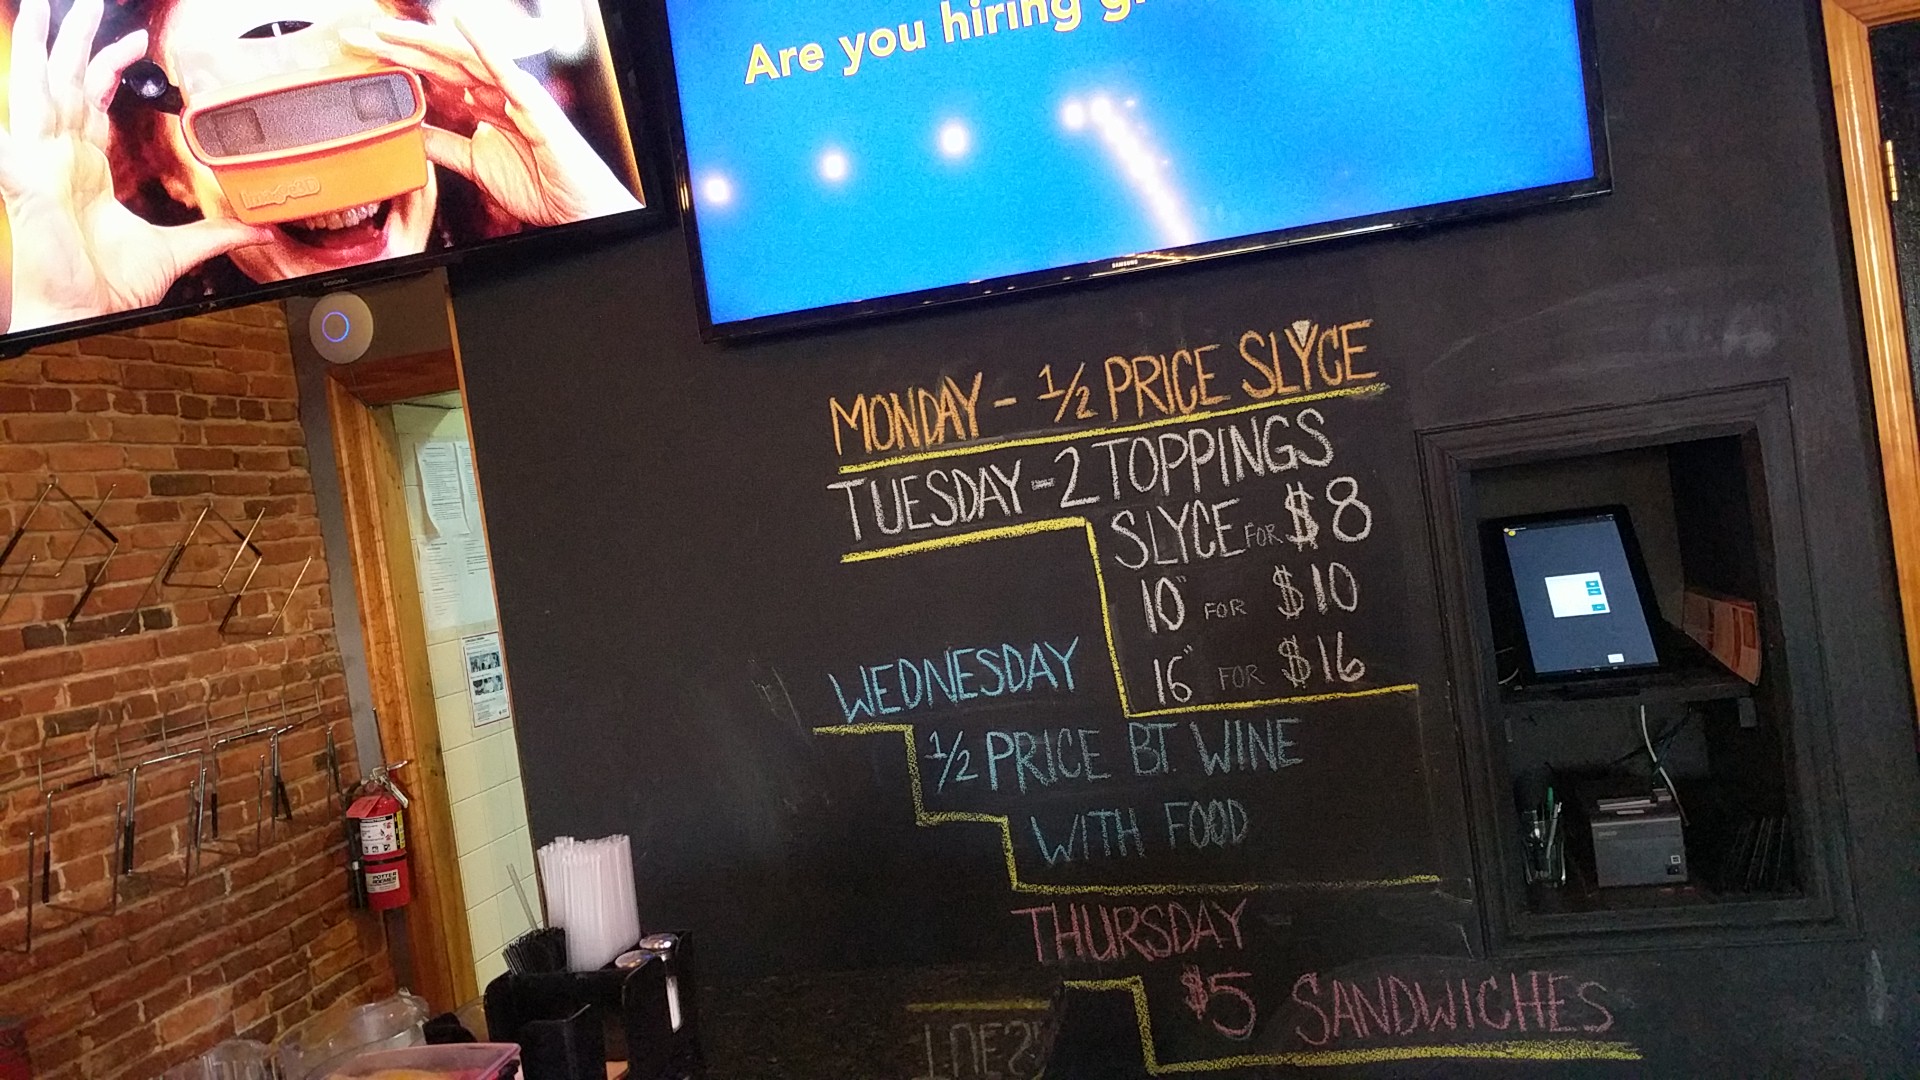 Are you hiring
image3D
INSIGNIA
SAMSUNG
MONDAY - 1/2 PRICE SLYCE
TUESDAY - 2 TOPPINGS
SLYCE FOR $8
10" FOR $10
16" FOR $16
WEDNESDAY
1/2 PRICE BT. WINE
WITH FOOD
THURSDAY
$5 SANDWICHES
POTTER
ROEMER